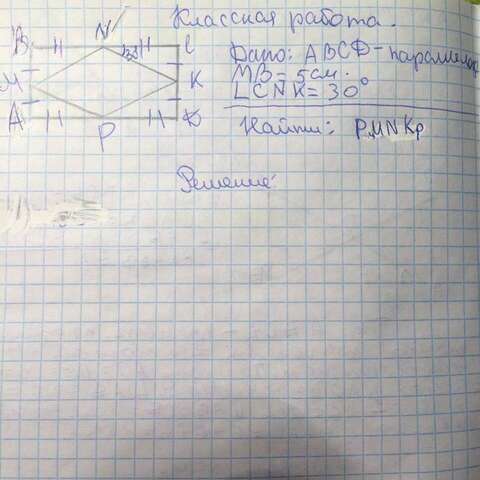 Классная работа.
B N C
30
M K
A P D
Дано: ABCD - параллелог
MB = 5 см.
∠CNK = 30°
Найти: PMNKP
Решение: